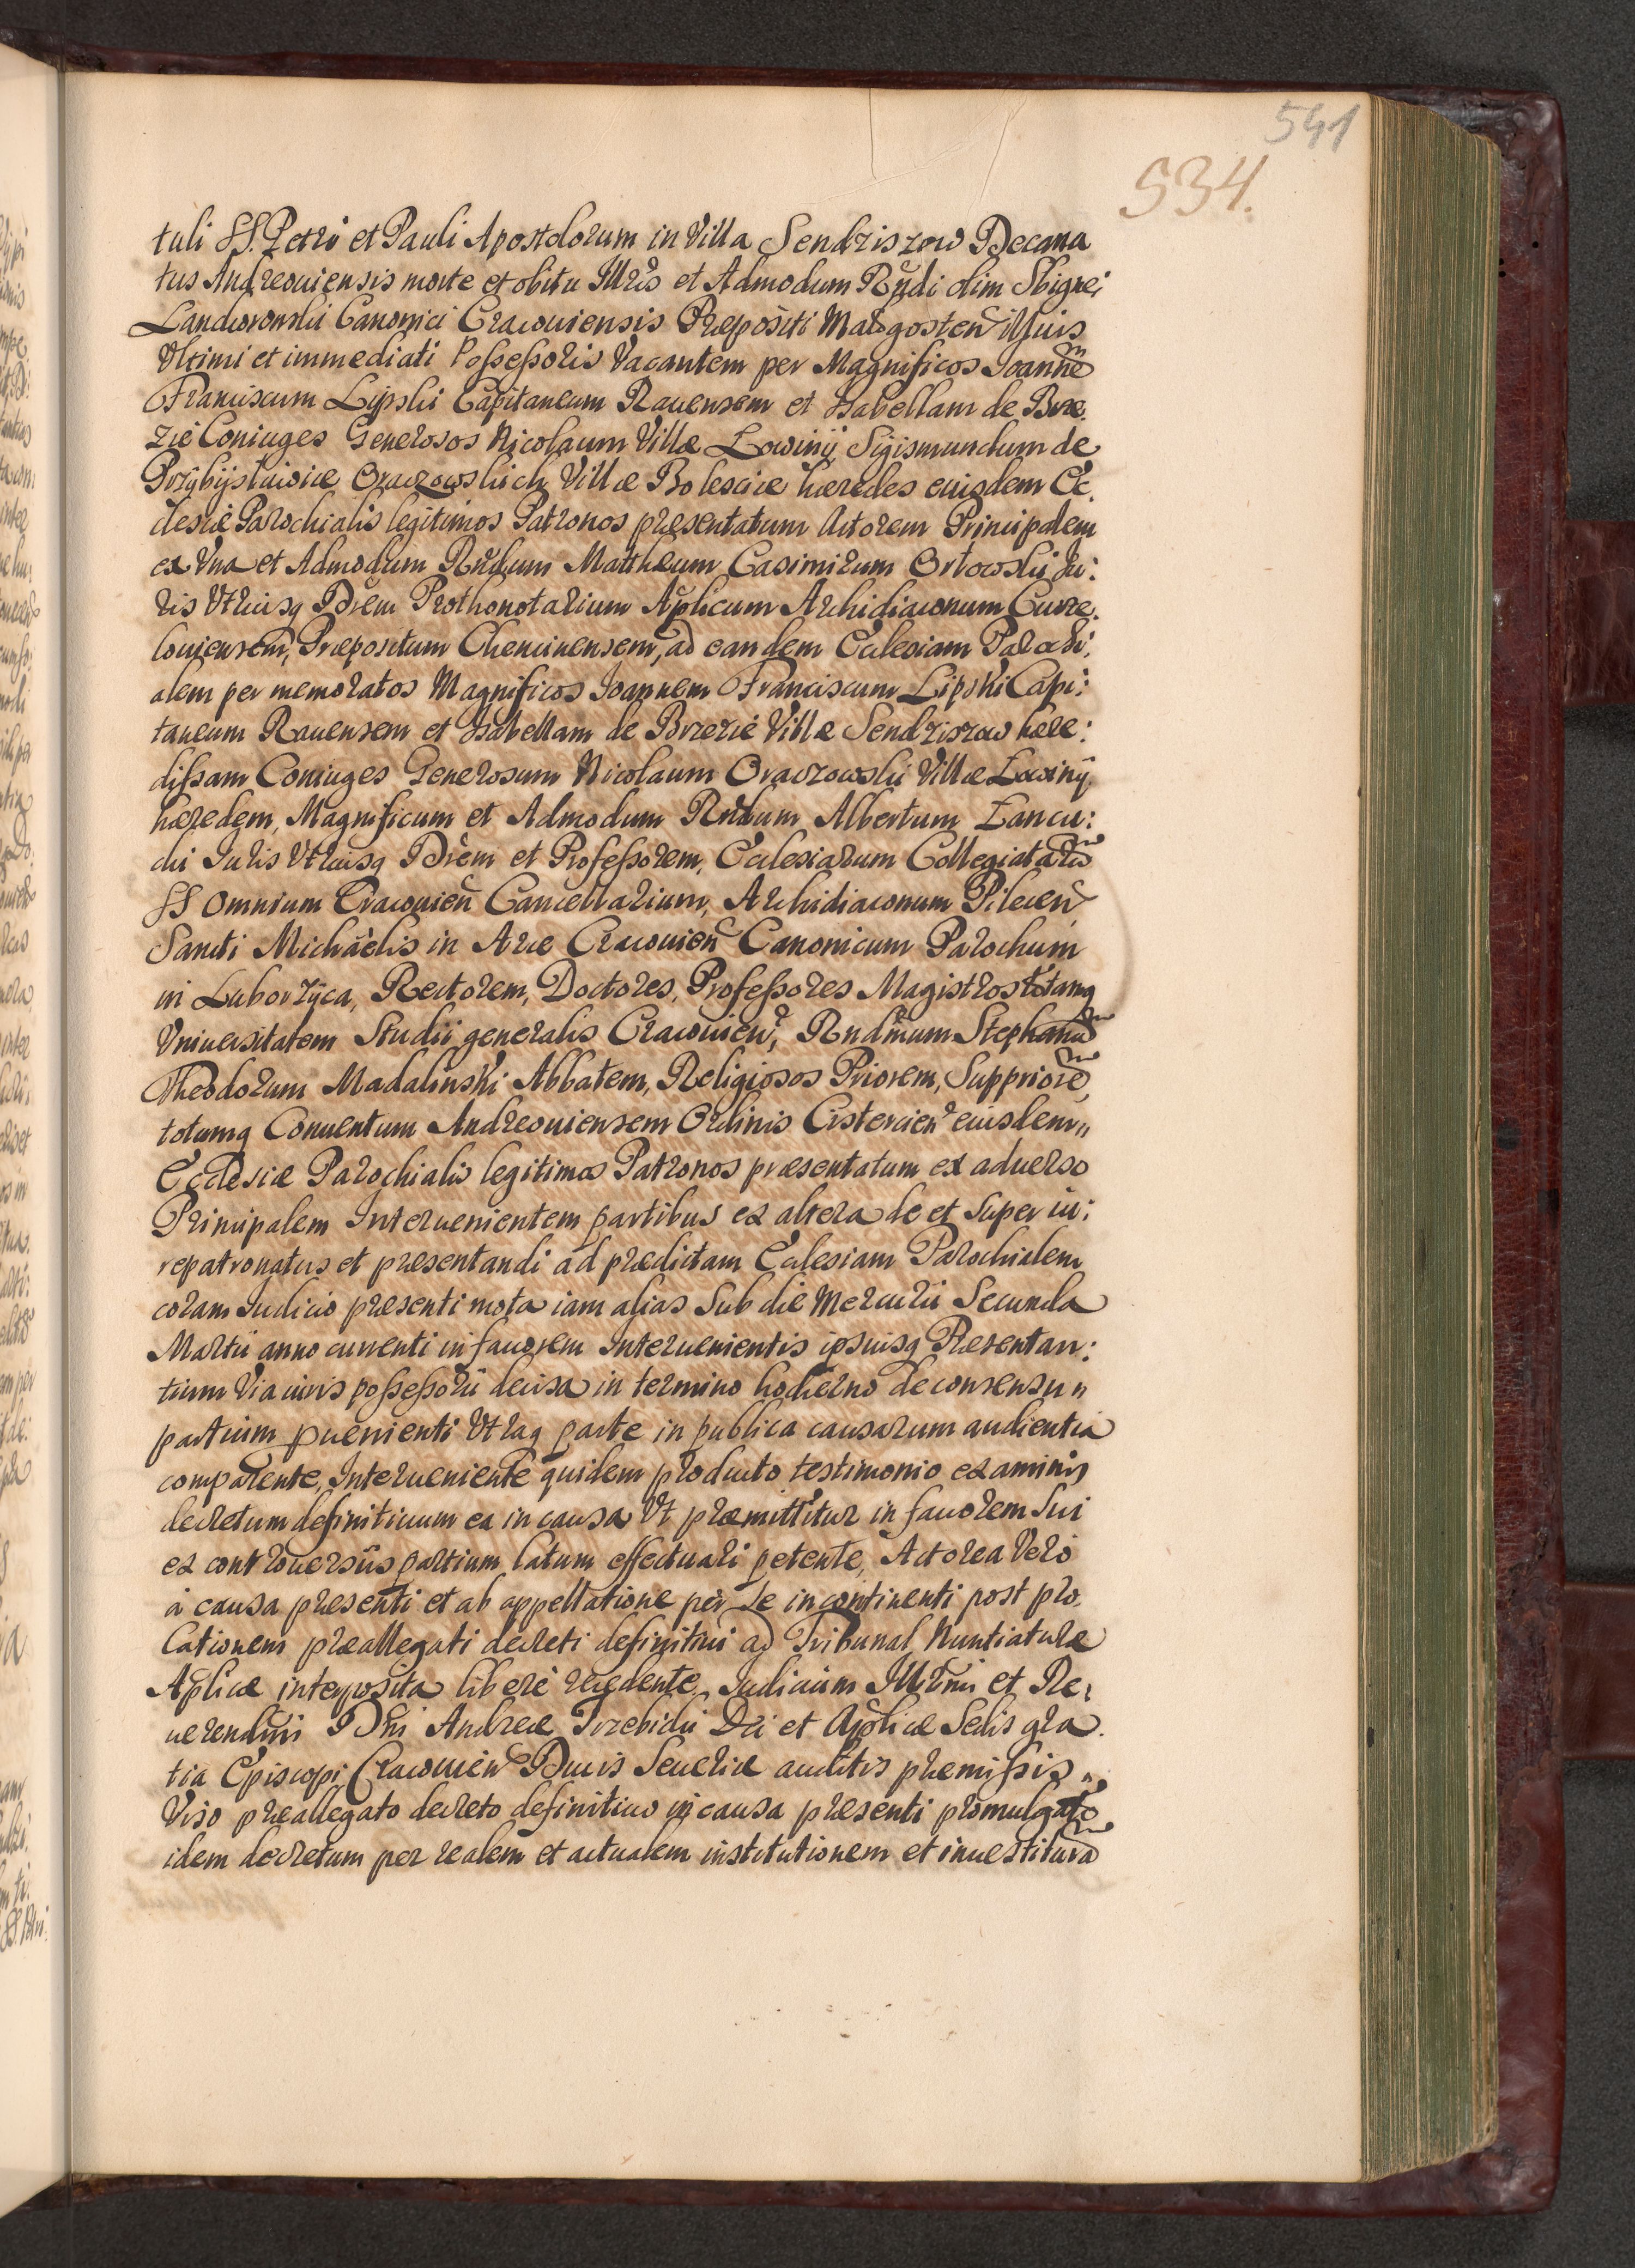 541
534.
tuli SS. Petri et Pauli Apostolorum in Villa Sendziszow Decana
tus Andreouiensis morte et obitu Illris et Admodum Rndi olim Sbignei
Landcoronski Canonici Cracouiensis Præpositi Malogosten illius
Vltimi et immediati Possessoris Vacantem per Magnificos Joanne
Franciscum Lipski Capitaneum Rauensem et Isabellam de Brze
zie Coniuges Generosos Nicolaum Villæ Lowinij Sigismundum de
Przybysławice Oraczowskich Villæ Bolescice hæredes eiusdem Ec
clesiæ Parochialis legitimos Patronos præsentatum Actorem Principalem
ex Vna et Admodum Rndum Mattheum Casimirum Orłowski Ju:
ris Vtriusq Drem Prothonotarium Aplicum Archidiaconum Curze
louiensem, Præpositum Chencinensem, ad eandem Ecclesiam Parochi
alem per memoratos Magnificos Joannem Franciscum Lipski Capi:
taneum Rauensem et Isabellam de Brzezie Villæ Sendziszow hære:
dissam Coniuges Generosum Nicolaum Oraczowski Villæ Lowinij
hæredem, Magnificum et Admodum Rndum Albertum Łancu:
cki Juris Vtriusq Drem et Professorem, Ecclesiarum Collegiataru
SS Omnium Cracouien Cancellarium, Archidiaconum Pilecen
Sancti Michaelis in Arce Cracouien Canonicum Parochum
in Luborzyca, Rectorem, Doctores, Professores Magistros totamq
Vniuersitatem Studii generalis Cracouien, Rndmum Stephanu
Theodorum Madalinski Abbatem, Religiosos Priorem, Suppriore,
totumq Conuentum Andreouiensem Ordinis Cistercien eiusdem
Ecclesiæ Parochialis legitimos Patronos præsentatum ex aduerso
Principalem Interuenientem partibus ex altera de et super iu:
repatronatus et præsentandi ad prædictam Ecclesiam Parochialem
coram Judicio præsenti mota iam alias Sub die Mercurii Secunda
Martii anno currenti in fauorem Interuenientis ipsiusq Præsentan:
tium Via iuris possessorii decisa in termino hodierno de consensu
partium puenienti Vtraq parte in publica causarum audientia
comparente, Interueniente quidem producto testimonio examinis
decretum definitiuum ea in causa Vt præmittitur in fauorem Sui
ex controuersiis partium latum effectuari petente, Actorea Vero
à causa præsenti et ab appellatione per Se incontinenti post pro
lationem præallegati decreti definitiui ad Tribunal Nuntiaturæ
Aplicæ interposita liberè recedente, Judicium Illrmi et Re:
uerendmi Dni Andreæ Trzebicki Dei et Aplicæ Sedis gra
tia Episcopi Cracouien Ducis Seueriæ auditis præmissis
Viso præallegato decreto definitiuo in causa præsenti promulgato
idem decretum per realem et actualem institutionem et inuestitura